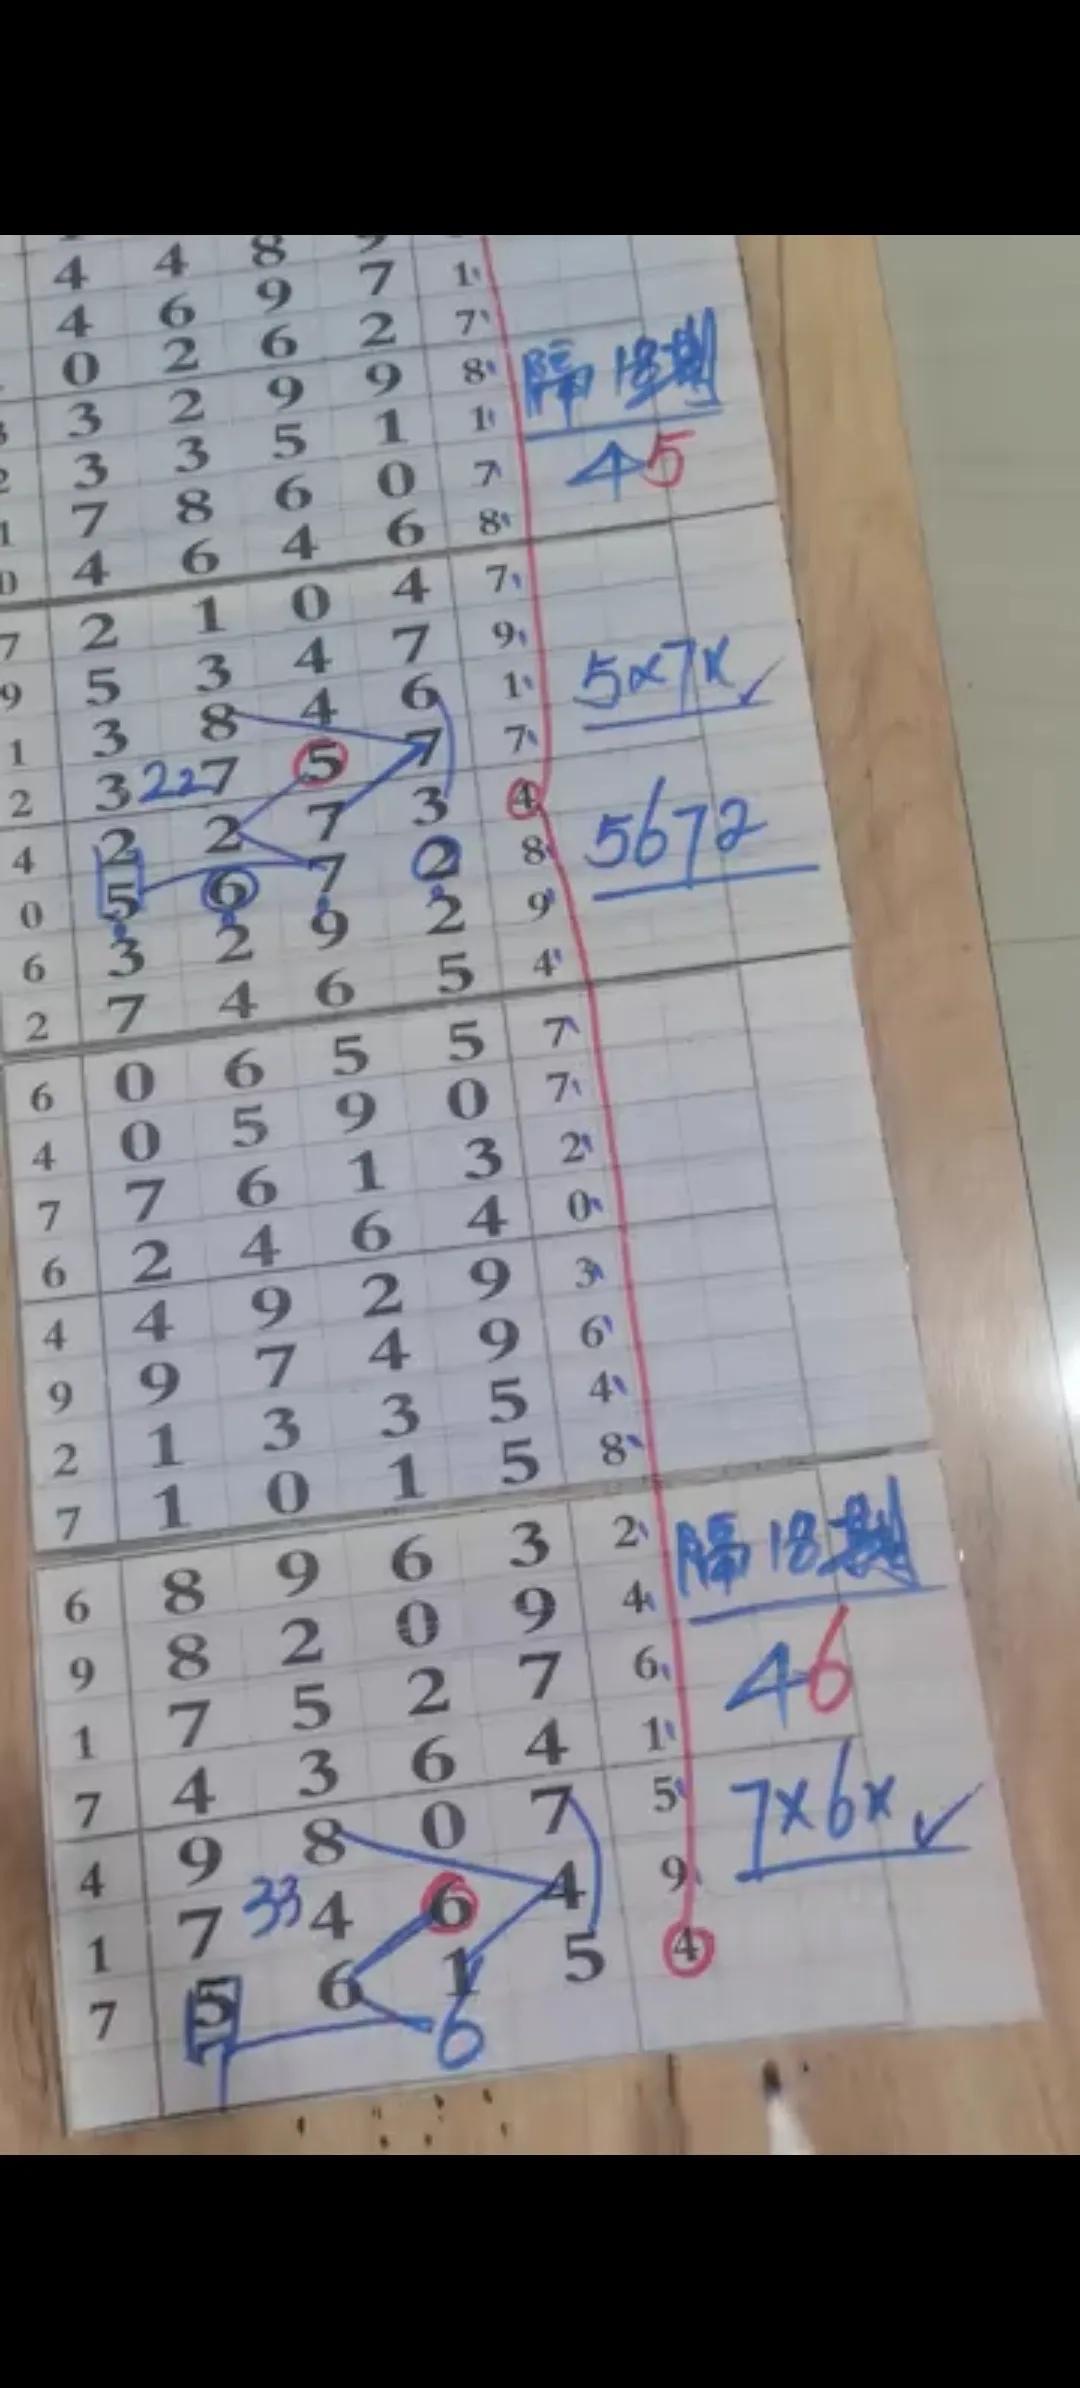 4 4 8
4 6 9 7 1
0 2 6 2 7
3 2 9 9 8
3 3 5 1 1
7 8 6 0 7
0 4 6 4 6 8
隔18期
45
7 2 1 0 4 7
9 5 3 4 7 9
1 3 8 4 6 1
2 3 227 5 7 7
4 2 2 7 3 4
0 5 6 7 2 8
6 3 2 9 2 9
2 7 4 6 5 4
5x7x✓
5672
6 0 6 5 5 7
4 0 5 9 0 7
7 7 6 1 3 2
6 2 4 6 4 0
4 4 9 2 9 3
9 9 7 4 9 6
2 1 3 3 5 4
7 1 0 1 5 8
6 8 9 6 3 2
9 8 2 0 9 4
1 7 5 2 7 6
7 4 3 6 4 1
4 9 8 0 7 5
1 7 33 4 6 4 9
7 5 6 1 5 4
7 6
隔18期
46
7x6x✓